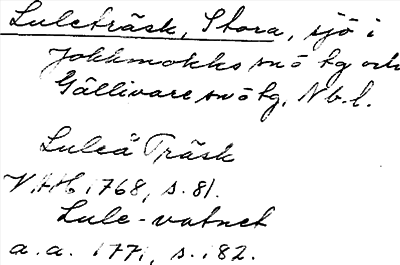 Luleträsk, Stora, sjö i
Jokkmokks snö tg och
Gällivare snö tg, Nb. l.
Luleå Träsk
VAH 1768, s. 81.
Lule-vatnet
a.a. 1771, s. 182.